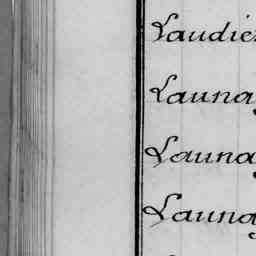 Laudier
Launay
Launay
Launay